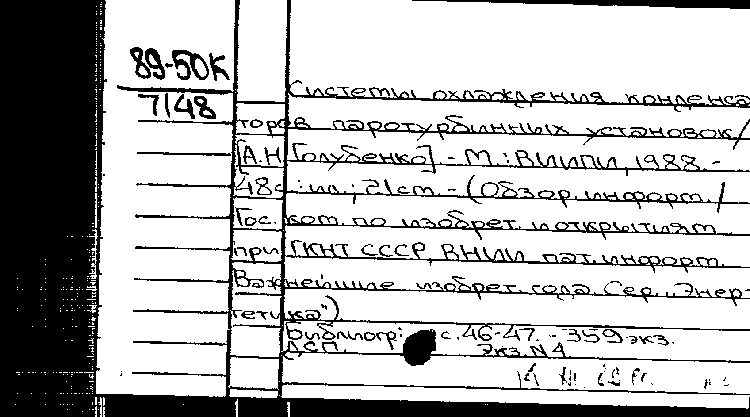 89-50К
7148
Системы охлаждения конденса
торов паротурбинных установок/
[А.Н Голубенко]. - М.: ВНИИПИ, 1988. -
48с.: ил.; 21см. - (Обзор. информ. /
Гос. ком. по изобрет. и открытиям
при ГКНТ СССР, ВНИИ пат. информ.
Важнейшие изобрет. года. Сер. „Энер-
гетика")
Библиогр: с. 46-47. - 359 экз.
ДСП. Экз. N4